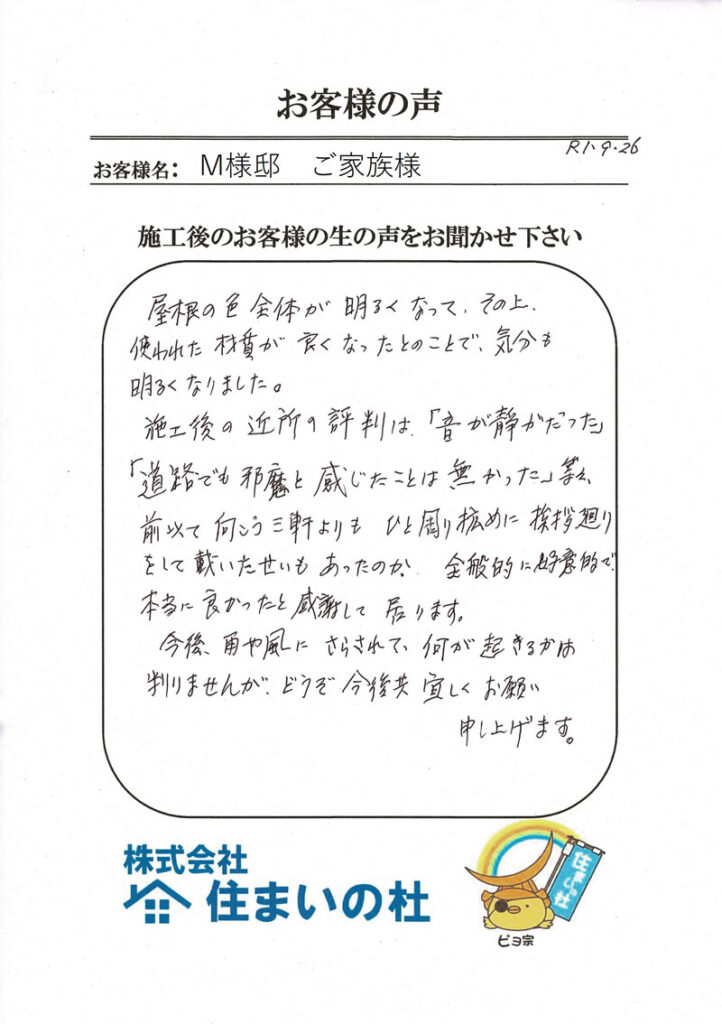 お客様の声
R1.9.26
お客様名： M様邸　ご家族様
施工後のお客様の生の声をお聞かせ下さい
屋根の色全体が明るくなって、その上、
使われた材質が良くなったとのことで、気分も
明るくなりました。
施工後の近所の評判は、「音が静かだった」
「道路でも邪魔と感じたことは無かった」等々、
前以て向こう三軒よりもひと周り拡めに挨拶廻り
をして戴いたせいもあったのか、全般的に好意的で
本当に良かったと感謝して居ります。
今後、雨や風にさらされて、何が起きるかは
判りませんが、どうぞ今後共宜しくお願い
申し上げます。
株式会社
住まいの杜
住まいの杜
ピヨ宗